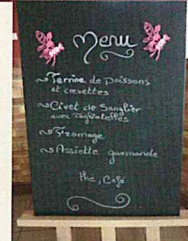 Menu
Terrine de poissons
et crevettes
Civet de Sanglier
avec Tagliatelles
Fromage
Assiette gourmande
thé, Café